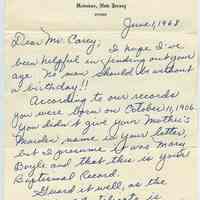 Metuchen, New Jersey
June 1, 1968
Dear Mr. Carey:
I hope I've
been helpful in finding out your
age. No man should be without
a birthday!!
According to our records
you were born on October 11, 1906
You didn't give your Mother's
Maiden name in your letter,
but I presume it was Mary
Boyle and that this is your
Baptismal Record.
Guard it well, as the